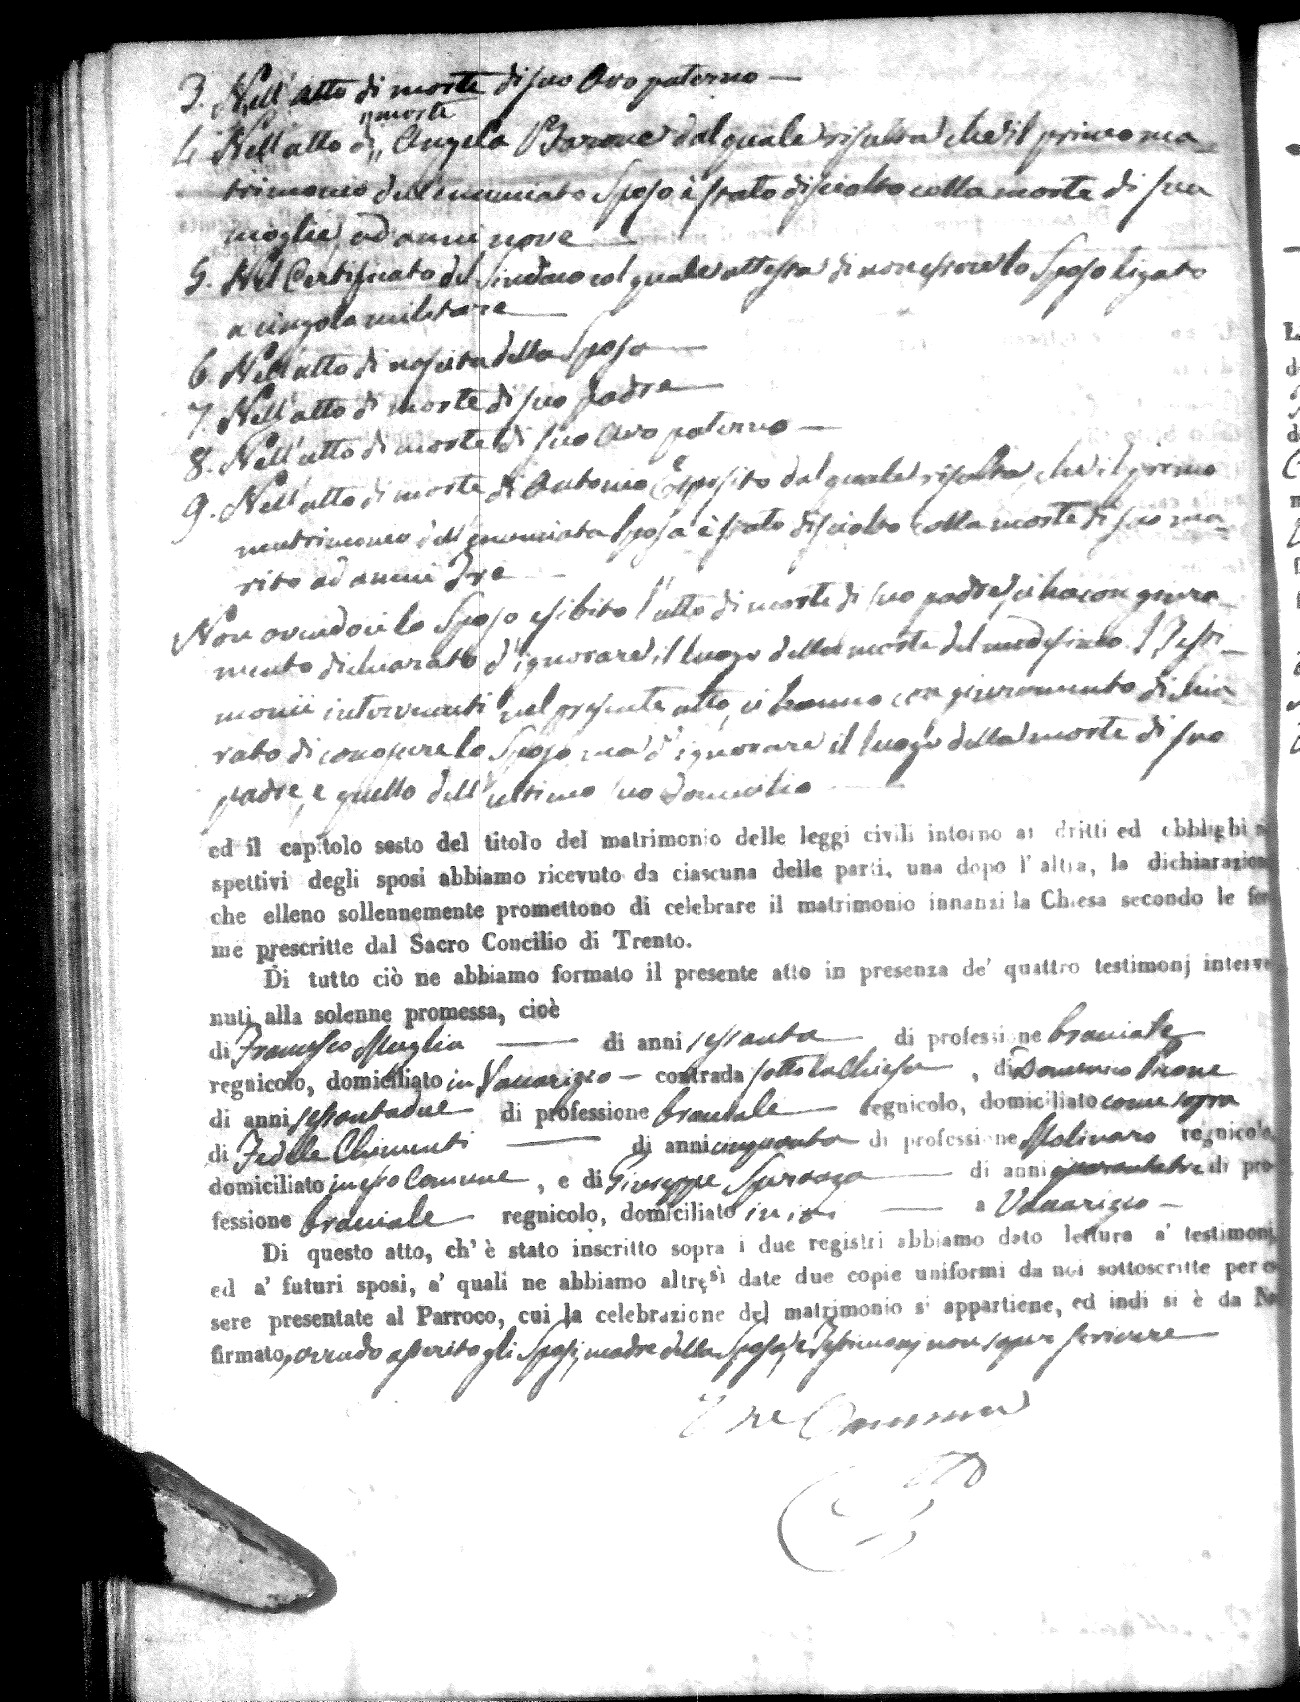 3. Nell'atto di morte di suo Avo paterno —
4. Nell'atto di morte Angela Barone dal quale risulta che il primo ma-
trimonio dell'enunciato Sposo è stato disciolto colla morte di sua
moglie ad anni nove
5. Nel Certificato del Sindaco col quale attesta di non essere lo Sposo ligato
a cingolo militare
6. Nell'atto di nascita della Sposa
7. Nell'atto di morte di suo Padre
8. Nell'atto di morte di suo Avo paterno —
9. Nell'atto di morte di Antonio Esposito dal quale risulta, che il primo
matrimonio dell'enunciata Sposa è stato disciolto colla morte di suo ma-
rito ad anni Tre
Non avendoci lo Sposo esibito l'atto di morte di suo padre, ci ha con giura-
mento dichiarato d'ignorare il luogo della morte del medesimo. I Testi-
monii intervenuti nel presente atto, ci hanno con giuramento dichia-
rato di conoscere lo Sposo, ma d'ignorare il luogo della morte di suo
padre, e quello dell'ultimo suo domicilio
ed il capitolo sesto del titolo del matrimonio delle leggi civili intorno ai dritti ed obblighi
spettivi degli sposi abbiamo ricevuto da ciascuna delle parti, una dopo l'altra, la dichiarazione
che elleno sollennemente promettono di celebrare il matrimonio innanzi la Chiesa secondo le for
me prescritte dal Sacro Concilio di Trento.
Di tutto ciò ne abbiamo formato il presente atto in presenza de' quattro testimonj interve
nuti alla solenne promessa, cioè
di Francesco Muglia — di anni sessanta di professione bracciale
regnicolo, domiciliato in Vaccarizzo — contrada sotto la Chiesa, di Domenico Perone
di anni sessantadue di professione bracciale regnicolo, domiciliato come sopra
di Fedele Chimenti — di anni cinquanta di professione Molinaro regnicolo,
domiciliato in esso Comune, e di Giuseppe Sprovza di anni quarantatre di pro-
fessione bracciale regnicolo, domiciliato in — a Vaccarizzo —
Di questo atto, ch' è stato inscritto sopra i due registri abbiamo dato lettura a' testimonj,
ed a' futuri sposi, a' quali ne abbiamo altresì date due copie uniformi da noi sottoscritte per es
sere presentate al Parroco, cui la celebrazione del matrimonio si appartiene, ed indi si è da No
firmato, avendo asserito gli Sposi, madre della Sposa, e Testimonj non saper scrivere